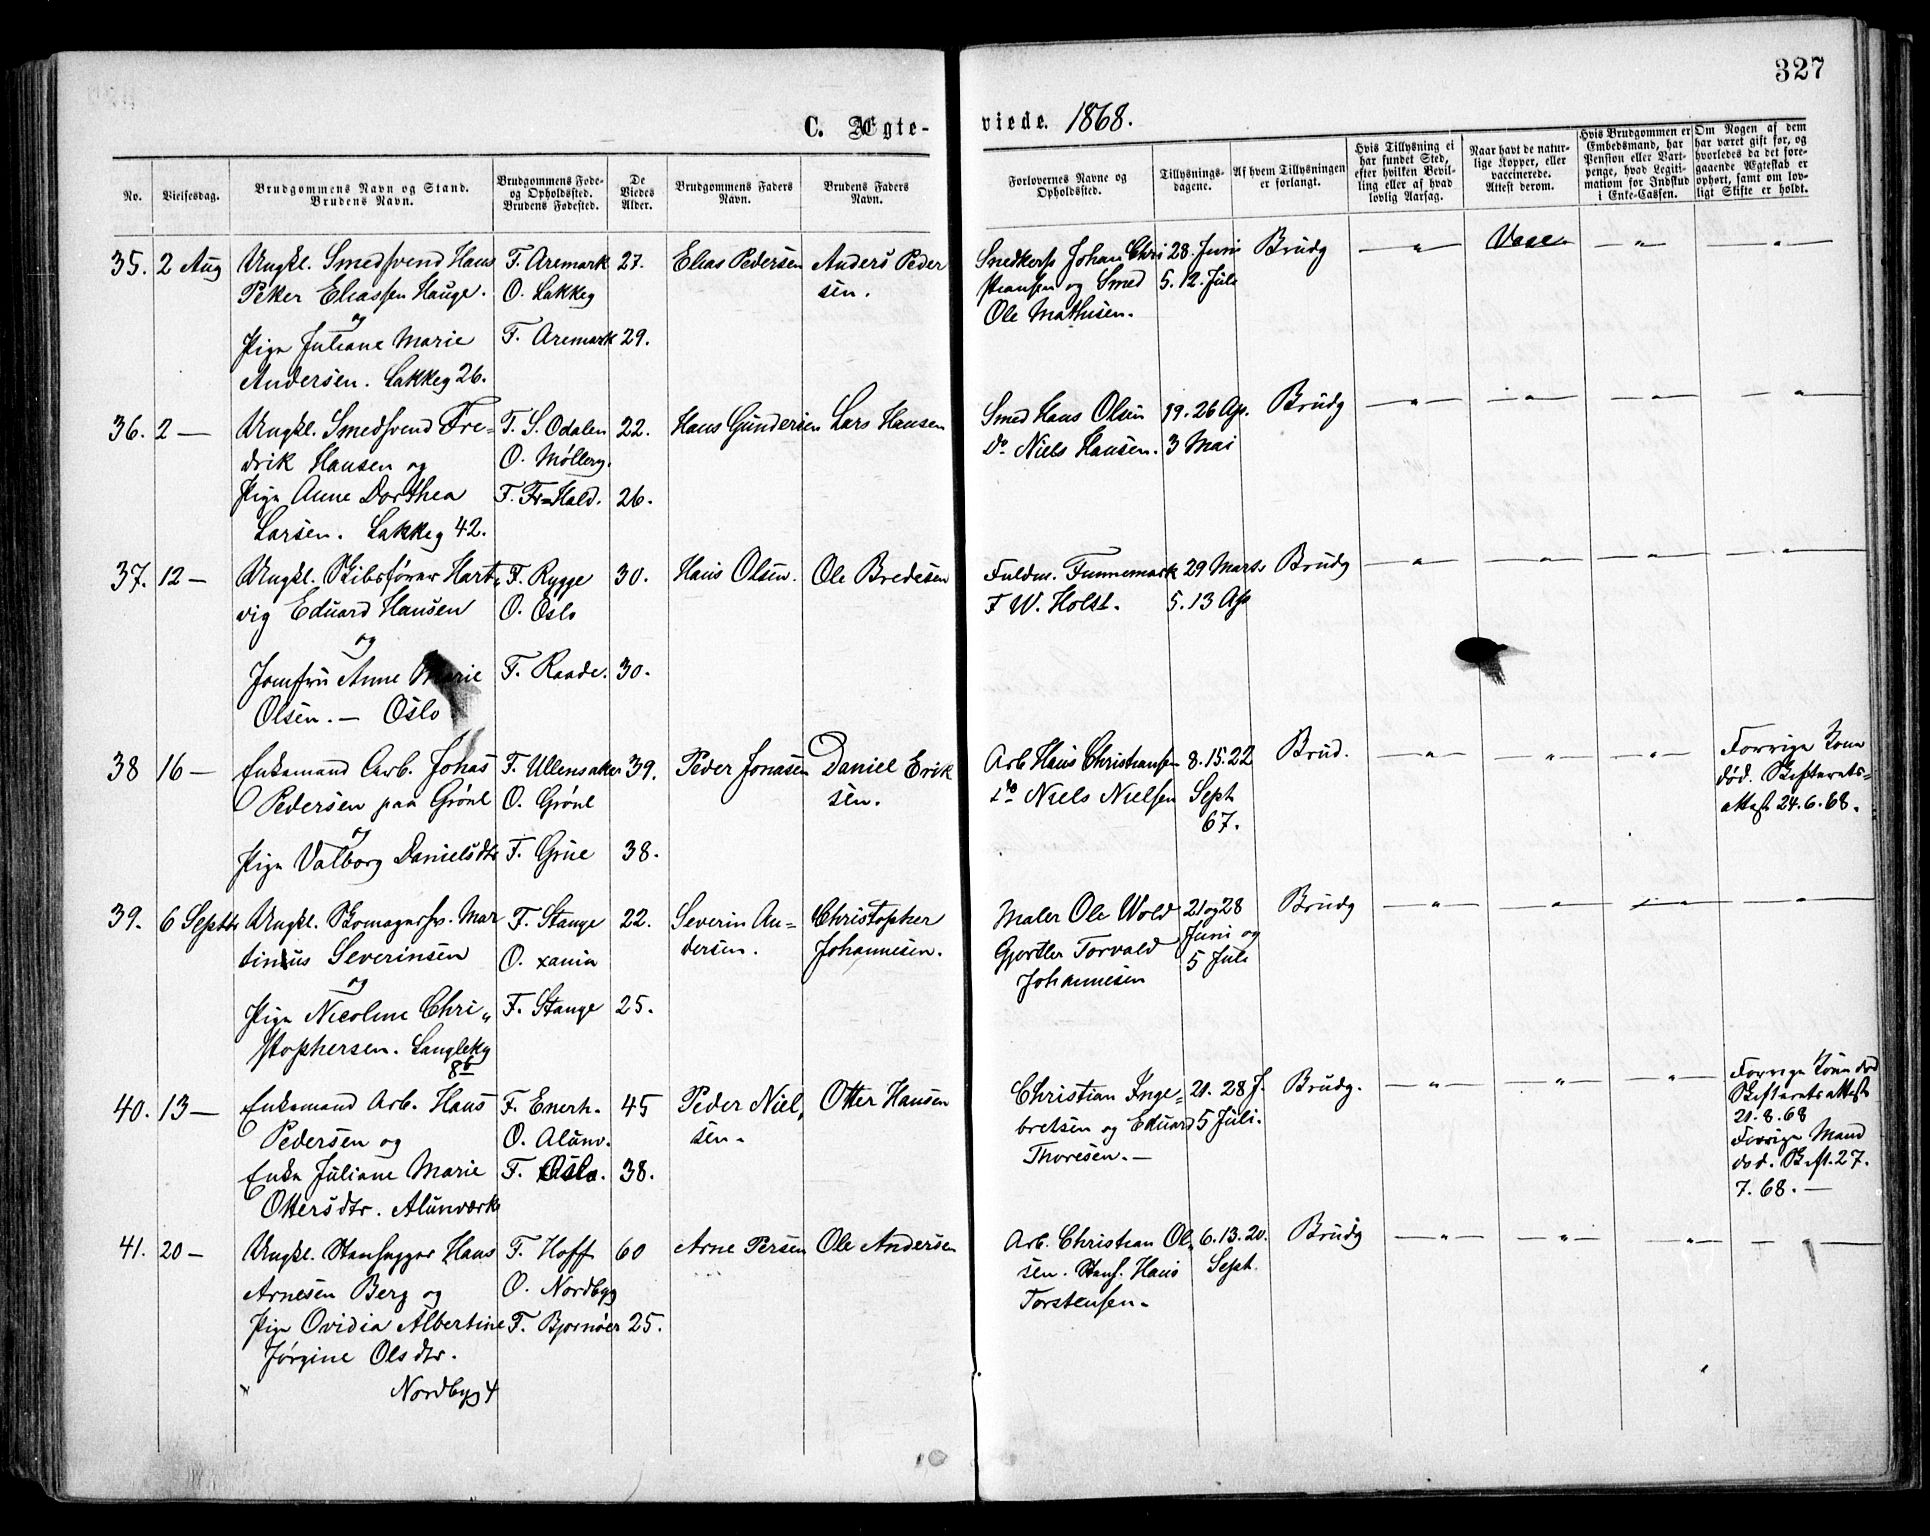 327
C. Ægte-
viede. 1868.
No.
Vielsesdag.
Brudgommens Navn og Stand.
Brudens Navn.
Brudgommens Føde-
og Opholdsted.
Brudens Fødested.
De
Viedes
Alder.
Brudgommens Faders
Navn.
Brudens Faders
Navn.
Forlovernes Navne og
Opholdssted.
Tillysnings-
dagene.
Af hvem Tillysningen
er forlangt.
Hvis Tillysning ei
har fundet Sted,
efter hvilken Bevil-
ling eller af hvad
lovlig Aarsag.
Naar havt de natur-
lige Kopper, eller
vaccinerede.
Attest derom.
Hvis Brudgommen er
Embedsmand, har
Pension eller Vart-
penge, hvad Legiti-
mation for Indskud
i Enke-Cassen.
Om Nogen af dem
har været gift før, og
hvorledes da det fore-
gaaende Ægteskab er
ophørt, samt om lov-
ligt Skifte er holdt.
35. 2 Aug Ungkl. Smedsvend Hans F. Aremark 27. Elias Pedersen Anders Peder
Peter Eliassen Hauge. O. Lakkeg sen.
og
Pige Juliane Marie F. Aremark 29.
Andersen. Lakkeg 26.
Snedkers Johan Chri 28. Juni Brudg — " — Vacc. — " — "
stiansen og Smed 5. 12. Juli
Ole Mathisen.
36. 2 — Ungkl. Smedsvend Fre- F. S. Odalen 22. Hans Gundersen Lars Hansen
drik Hansen og O. Møllerg.
Pige Anne Dorthea F. Fr=Hald. 26.
Larsen. Lakkeg 42.
Smed Hans Olsen 19. 26 Ap. Brudg — " — " — " — "
do Niels Hansen. 3 Mai
37. 12 — Ungkl. Skibsfører Hart- F. Rygge 30. Hans Olsen. Ole Bredesen
vig Eduard Hansen O. Oslo
og
Jomfru Anne Marie F. Raade. 30.
Olsen. — Oslo
Fuldm. Funnemark 29 Marts Brudg — " — " — " — "
F W. Holst. 5. 13 Ap
38 16 — Enkemand Arb. Johas F. Ullensaker 39. Peder Jonasen Daniel Erik
Pedersen paa Grønl O. Grønl sen.
og
Pige Valborg Danielsdtr F. Grue 38.
Arb Hans Christiansen 8. 15. 22 Brud. — " — " — " Forrige Kone
do Niels Nielsen Sept død. Skifterets-
67. attest 24. 6. 68.
39. 6 Septbr Ungkl. Skomagersv. Mar F. Stange 22. Severin An- Christopher
tinius Severinsen O. xania dersen. Johannesen.
og
Pige Nicoline Chri- F. Stange 25.
stophersen. Langleikg
8b
Maler Ole Wold 21 og 28 Brudg — " — " — " — "
Gjørtler Torvald Juni og
Johannesen 5 Juli
40. 13 — Enkemand Arb. Hans F. Enerh. 45 Peder Niel- Otter Hansen
Pedersen og O. Alunv. sen.
Enke Juliane Marie F. Oslo. 38.
Ottersdtr. Alunværk
Christian Inge- 21. 28 J. Brudg. — " — " — " Forrige Kone død
bretsen og Eduard 5 Juli. Skifterets attest
Thoresen. — 21. 8. 68
Forrige Mand
død. Skift. 27.
7. 68. —
41. 20 — Ungkl. Stenhugger Hans F. Hoff 60 Arne Persen Ole Andersen
Arnesen Berg og O. Nordbyg
Pige Ovidia Albertine F. Bjørnøer 25.
Jørgine Olsdtr.
" Nordbyg 4
Arb. Christian Ol- 6. 13. 20. Brudg — " — " — " — "
sen. Stenh. Hans Sept.
Torstensen.